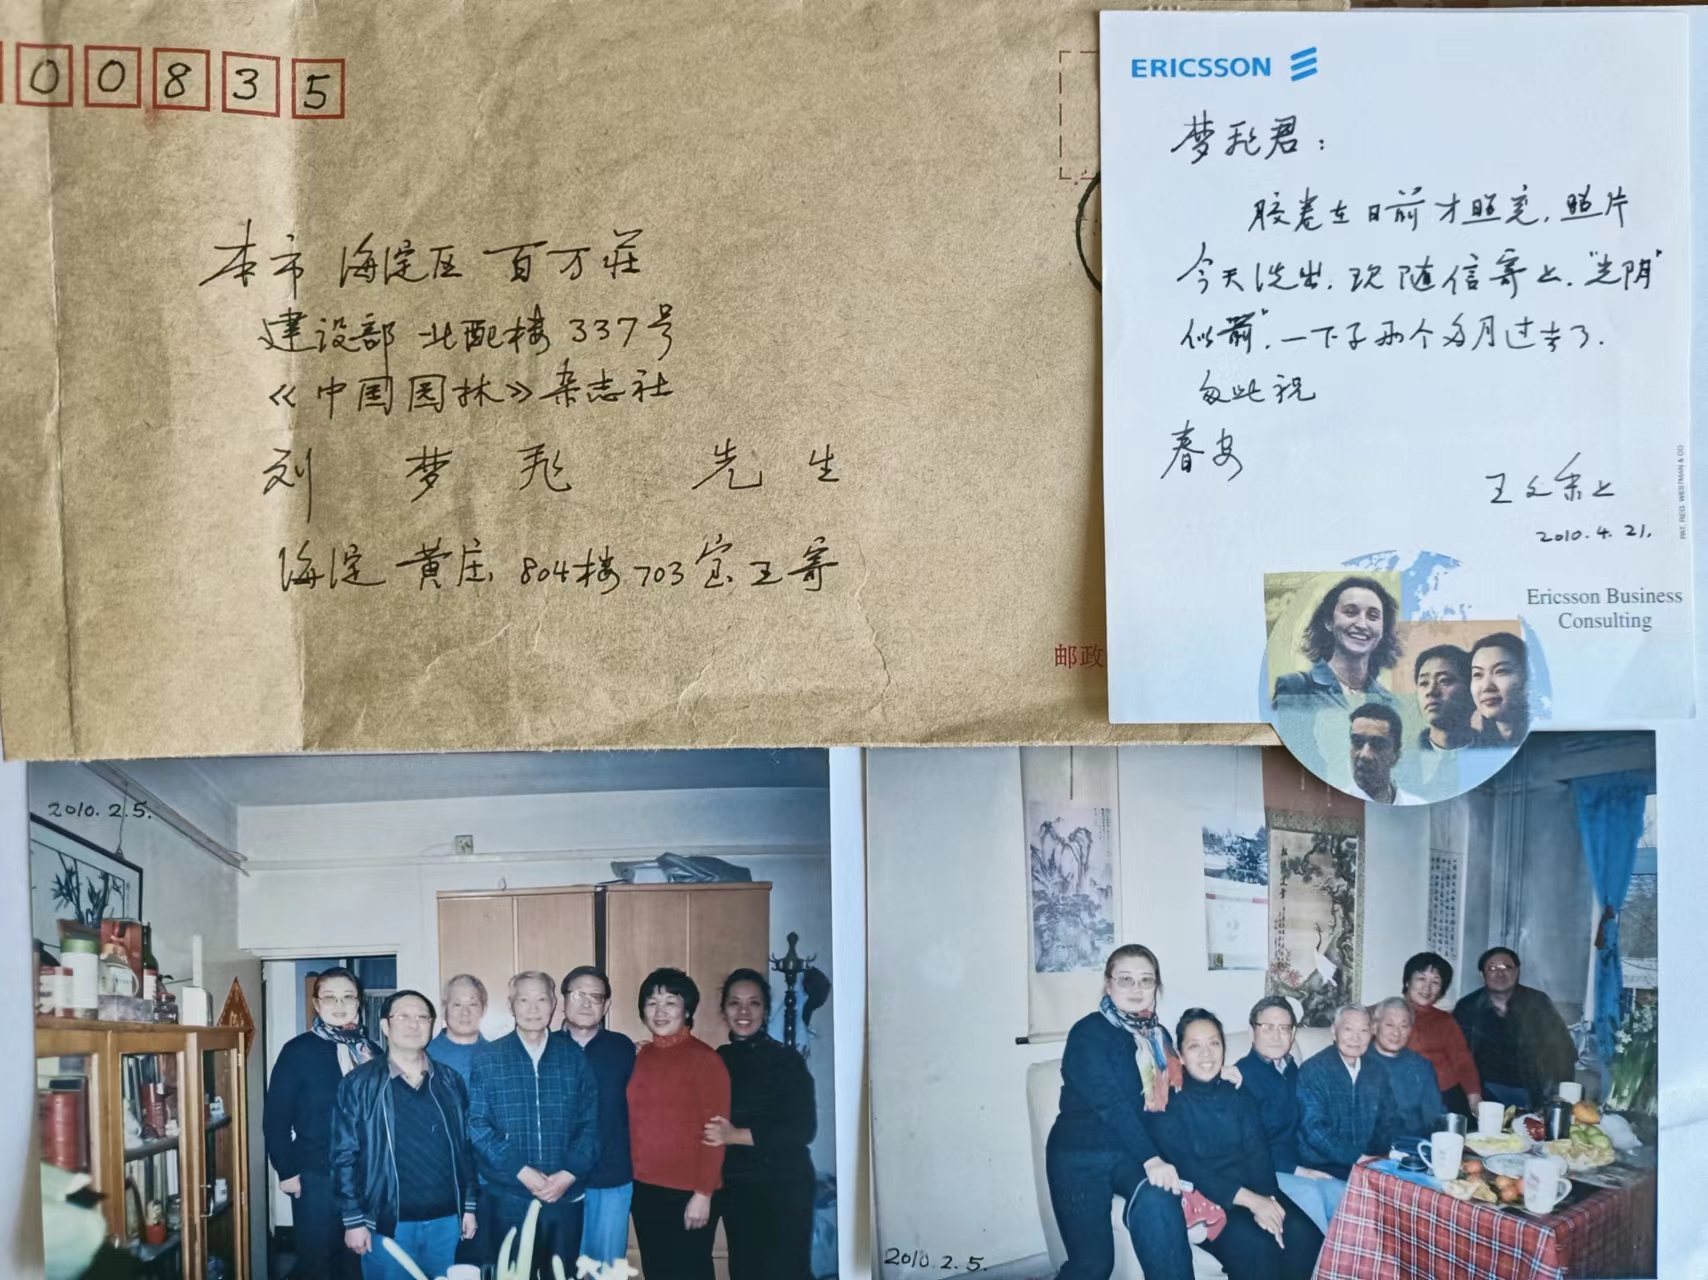 00835
本市 海淀区 百万莊
建设部 北配楼 337号
《中国园林》杂志社
刘 梦 先生
海淀 黄庄, 804楼 703室 王寄
邮政
ERICSSON
梦 君：
胶卷在日前才照完，照片
今天洗出，现随信寄上，“光阴”
似箭”，一下子两个多月过去了.
匆此祝
春安
王文 上
2010.4.21.
Ericsson Business
Consulting
2010.2.5.
2010.2.5.